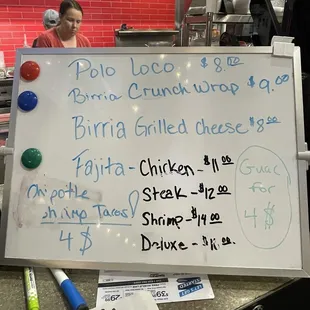 Polo Loco $8.00
Birria Crunch Wrap $9.00
Birria Grilled Cheese $8.00
Fajita - Chicken - $11.00
Steak - $12.00
Shrimp - $14.00
Deluxe -
Chipotle
Shrimp Tacos!
4$
Guac
for
4$